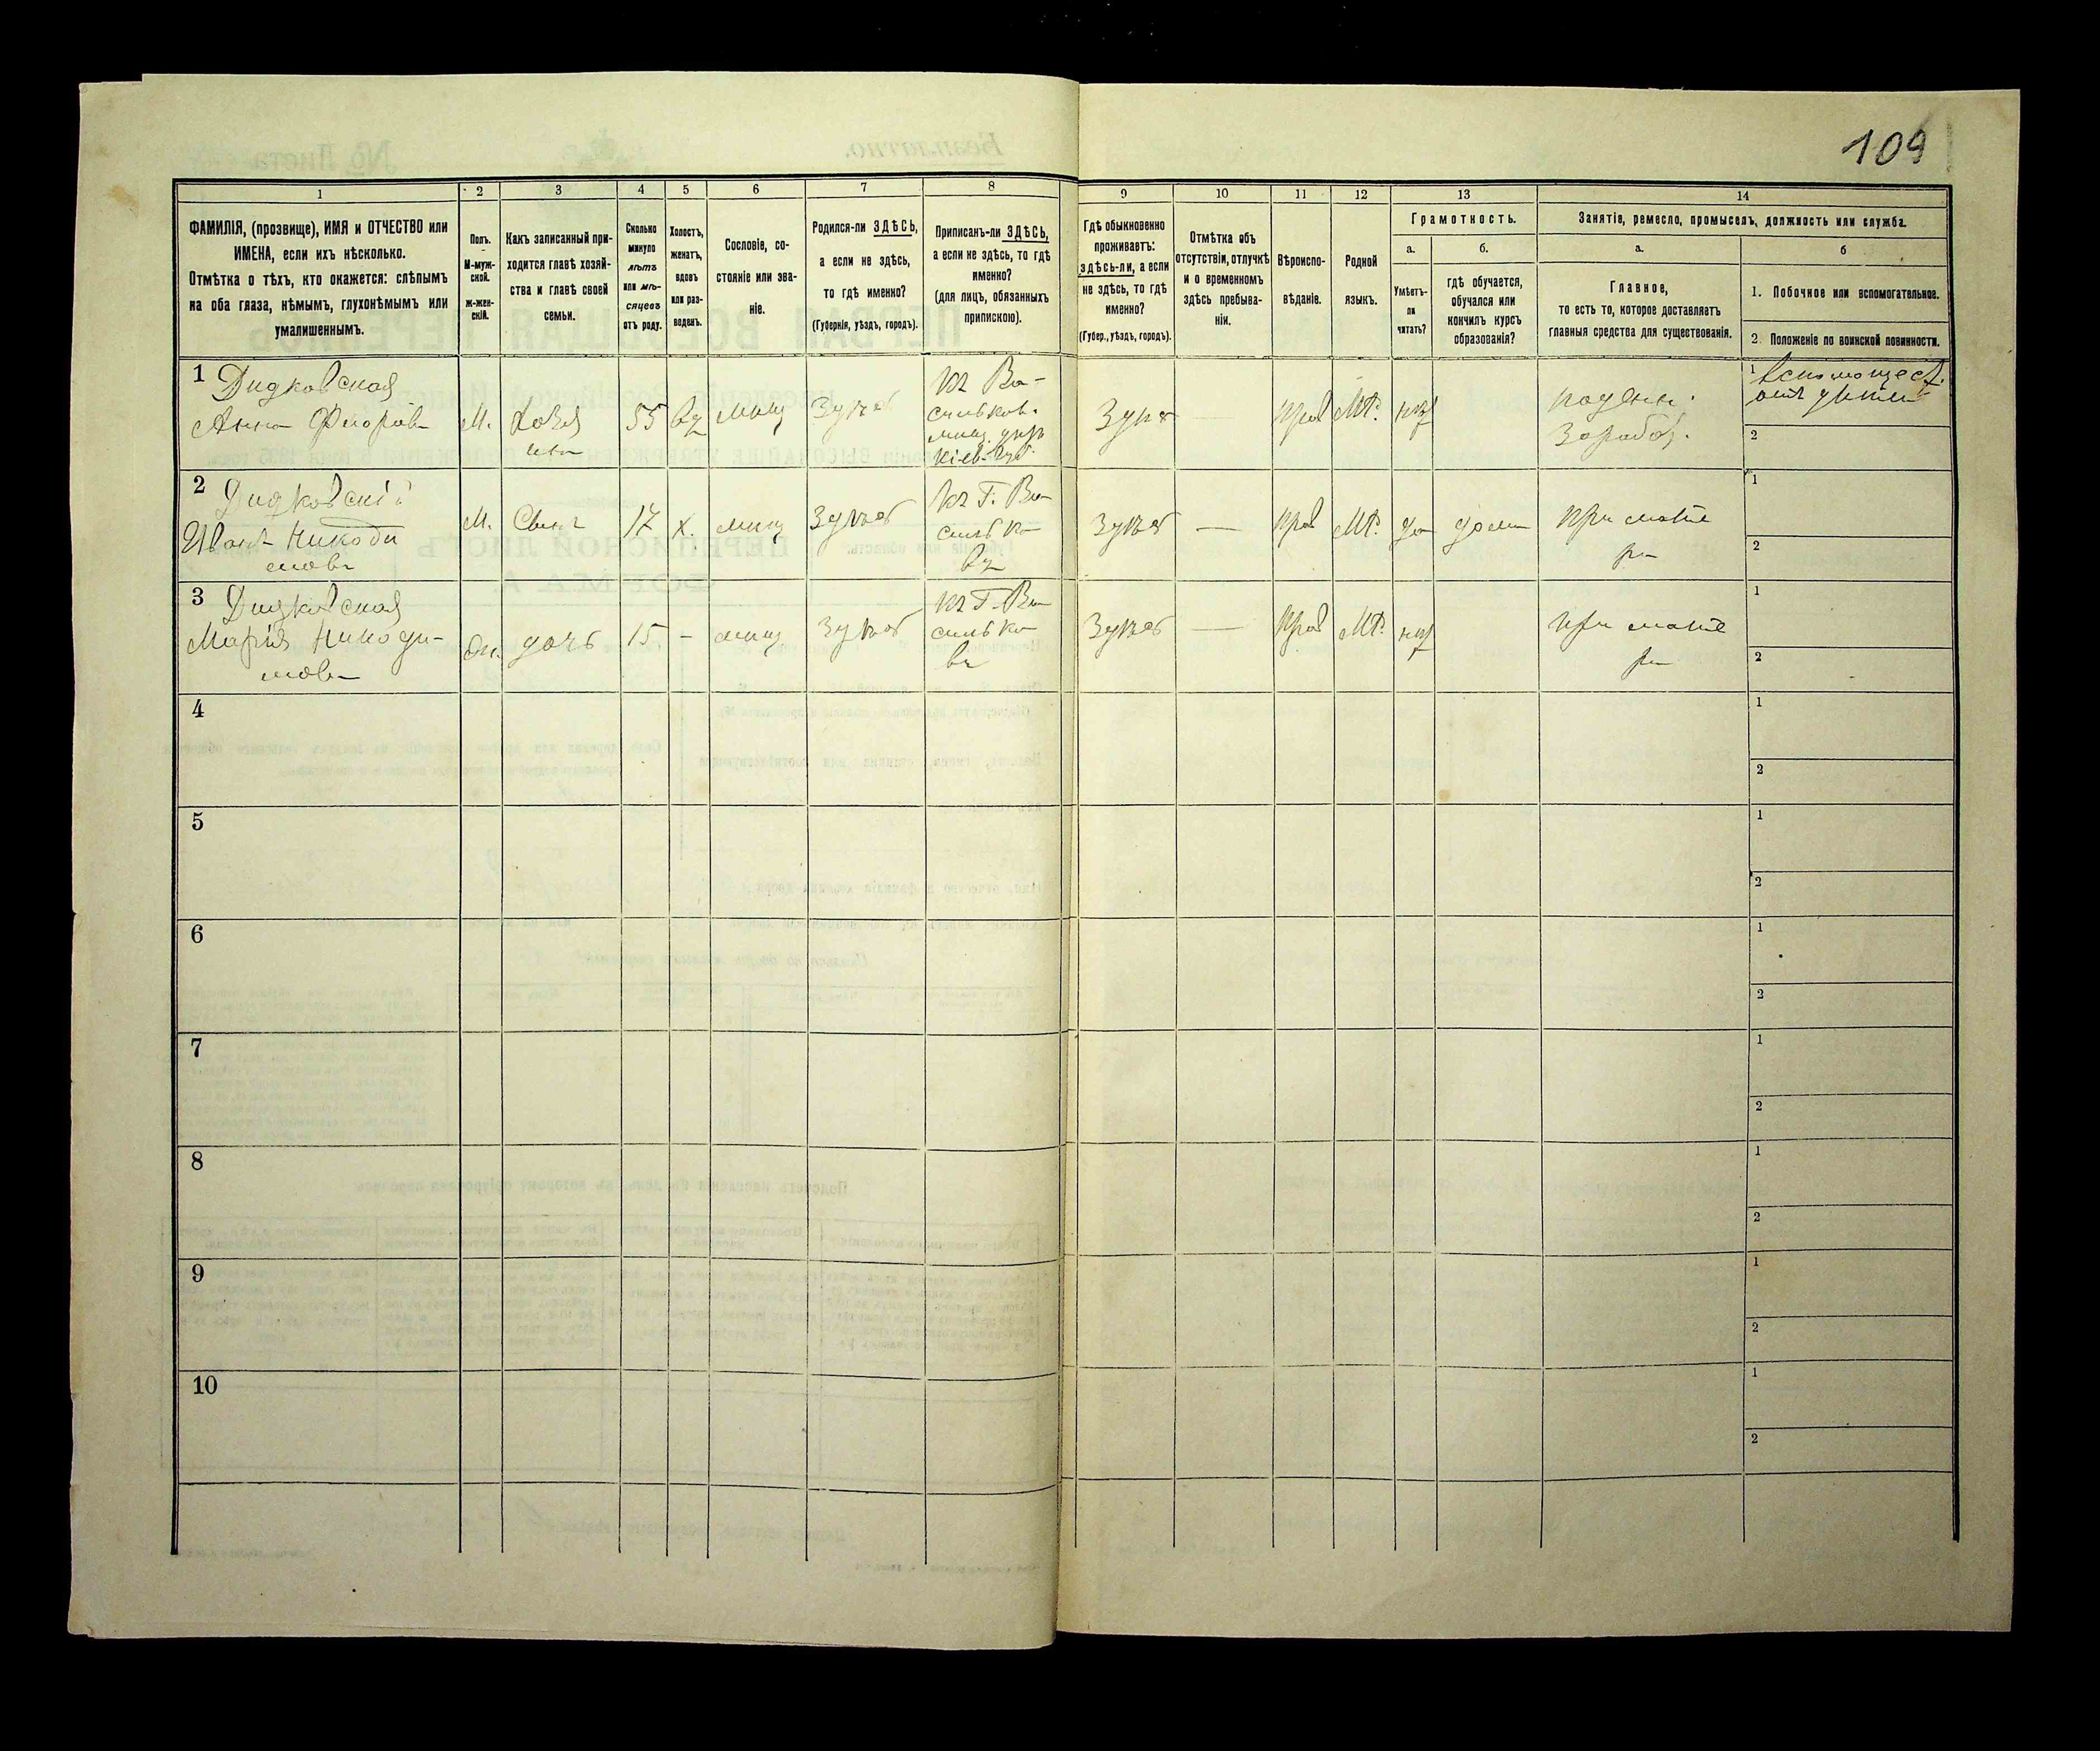 109
1
2
3
4
5
6
7
8
9
10
11
12
13
14
ФАМИЛІЯ, (прозвище), ИМЯ и ОТЧЕСТВО или
ИМЕНА, если ихъ нѣсколько.
Отмѣтка о тѣхъ, кто окажется: слѣпымъ
на оба глаза, нѣмымъ, глухонѣмымъ или
умалишеннымъ.
Полъ.
М-муж-
ской.
ж-жен-
скій.
Какъ записанный при-
ходится главѣ хозяй-
ства и главѣ своей
семьи.
Сколько
минуло
лѣтъ
или мѣ-
сяцевъ
отъ роду.
Холостъ,
женатъ,
вдовъ
или раз-
веденъ.
Сословіе, со-
стояніе или зва-
ніе.
Родился-ли ЗДѢСЬ,
а если не здѣсь,
то гдѣ именно?
(Губернія, уѣздъ, городъ).
Приписанъ-ли ЗДѢСЬ,
а если не здѣсь, то гдѣ
именно?
(для лицъ, обязанныхъ
припискою).
Гдѣ обыкновенно
проживаетъ:
здѣсь-ли, а если
не здѣсь, то гдѣ
именно?
(Губер., уѣздъ, городъ).
Отмѣтка объ
отсутствіи, отлучкѣ
и о временномъ
здѣсь пребыва-
ніи.
Вѣроиспо-
вѣданіе.
Родной
языкъ.
Грамотность.
а.
Умѣетъ-
ли
читать?
б.
гдѣ обучается,
обучался или
кончилъ курсъ
образованія?
Занятіе, ремесло, промыселъ, должность или служба.
а.
Главное,
то есть то, которое доставляетъ
главныя средства для существованія.
б
1. Побочное или вспомогательное.
2. Положеніе по воинской повинности.
1
Дидковская
Анна
55
вд
мищ
Здѣсь
Здѣсь
прав
МР.
1
2
2
Дидковскій
Иванъ Никоди
мовъ
М.
Сынъ
17
х.
мищ
Здѣсь
къ Г. Ва-
силько
въ
Здѣсь
—
прав
МР.
да
дома
при мате
ри
1
2
3
Дидковская
Марія Никоди-
мовн
дочь
15
-
мищ
Здѣсь
къ Г. Ва
силько
въ
Здѣсь
—
прав
МР.
при мате
ри
1
2
4
1
2
5
1
2
6
1
2
7
1
2
8
1
2
9
1
2
10
1
2